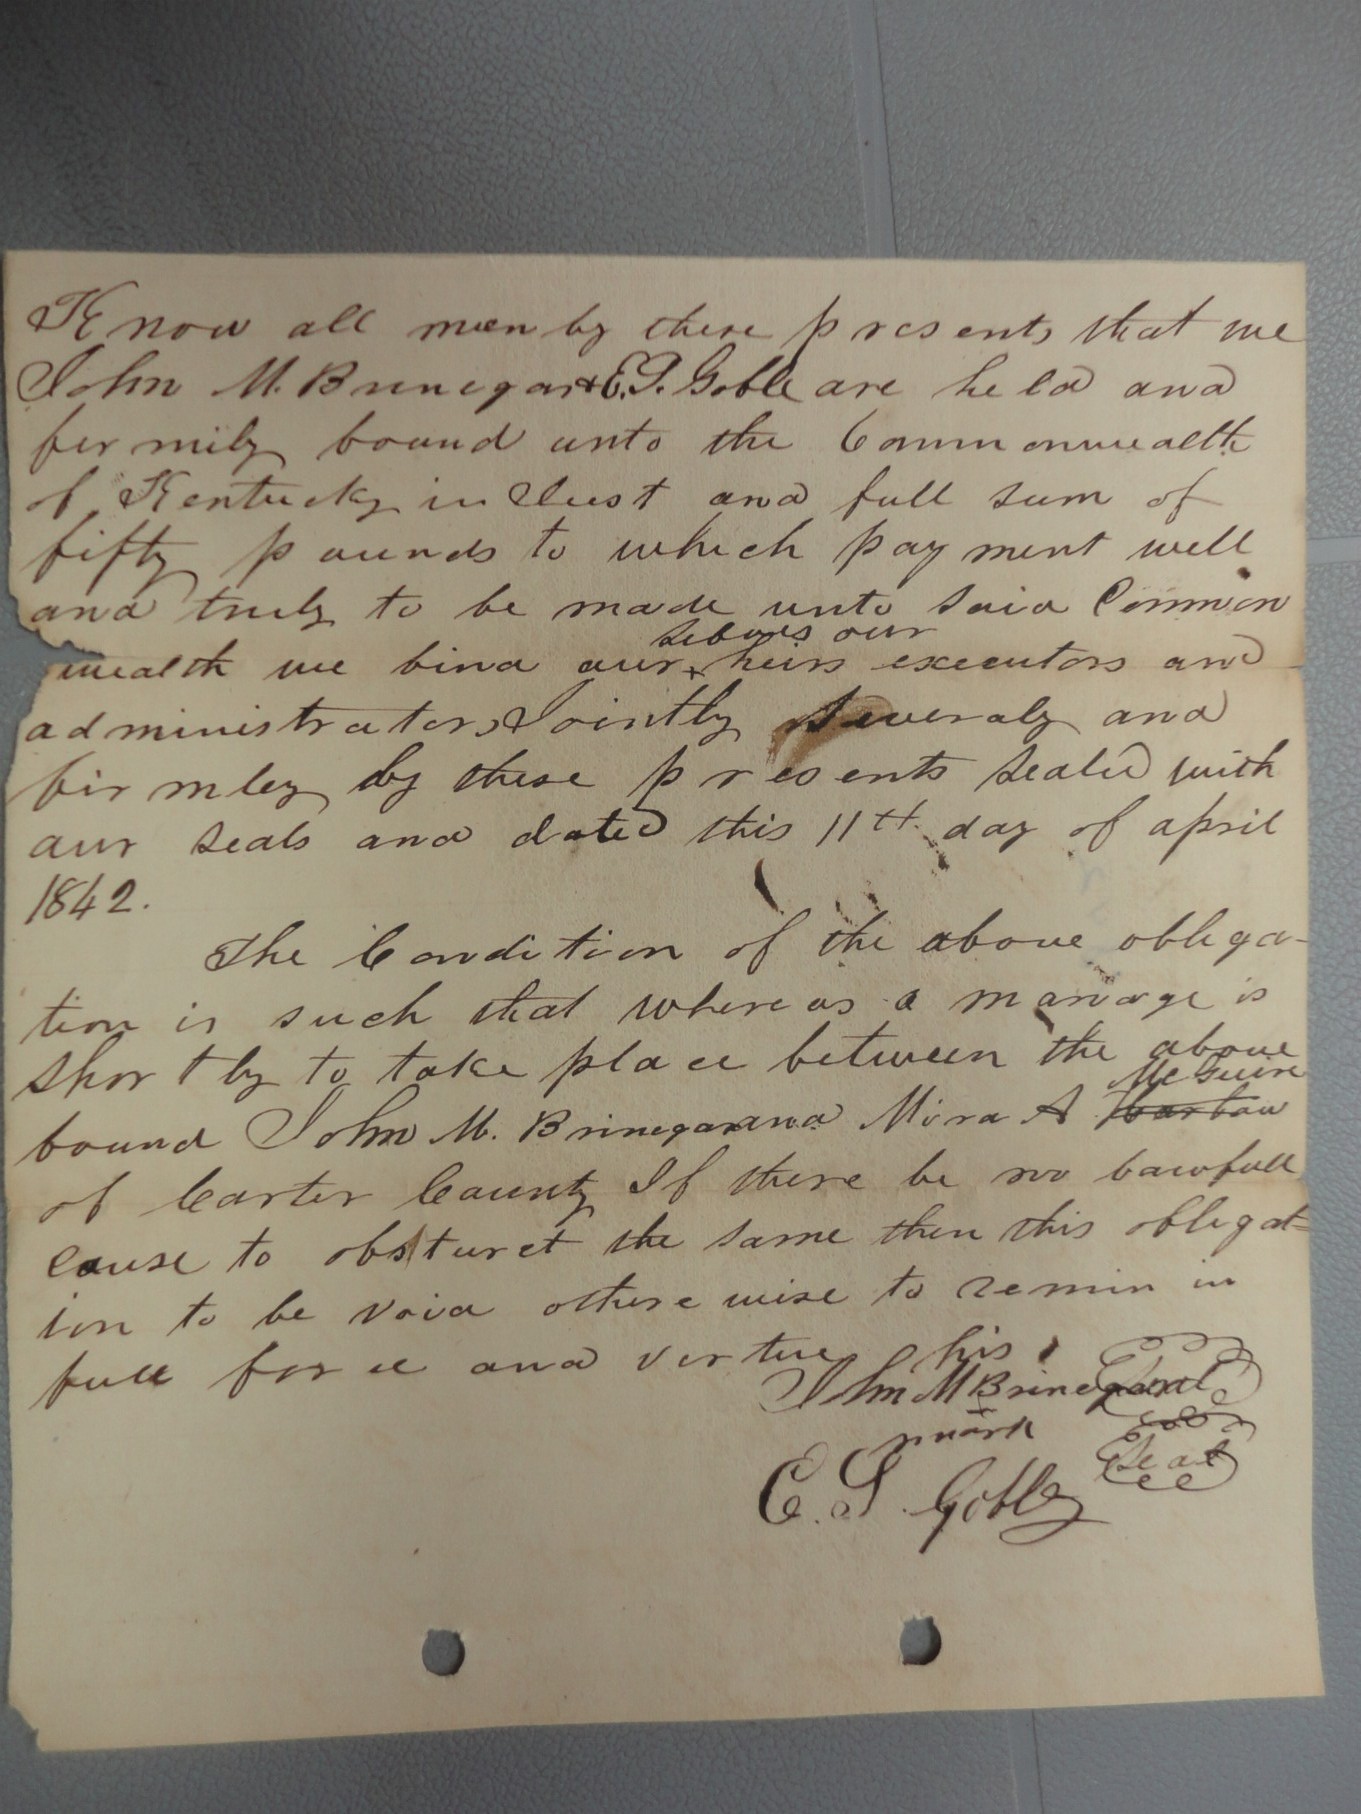 Know all men by these presents that we
John M. Brinegar & E. S. Goble are held and
fermily bound unto the Commonwealth
of Kentucky in Just and full sum of
fifty pounds to which payment well
and truly to be made unto said Common
wealth we bind our x heirs executors and
selves our
administrators Jointly Severaly and
firmley by these presents sealed with
our seals and dated this 11th day of april
1842.
The Condition of the above obliga-
tion is such that whereas a marage is
shortly to take place between the above
McGuire
bound John M. Brinegar and Mira A
of Carter County If there be no lawfull
cause to obsturct the same then this obligat=
ion to be void otherewise to remin in
full force and vertue his
John M Brinegar Seal
x
mark
Seal
E. S. Goble